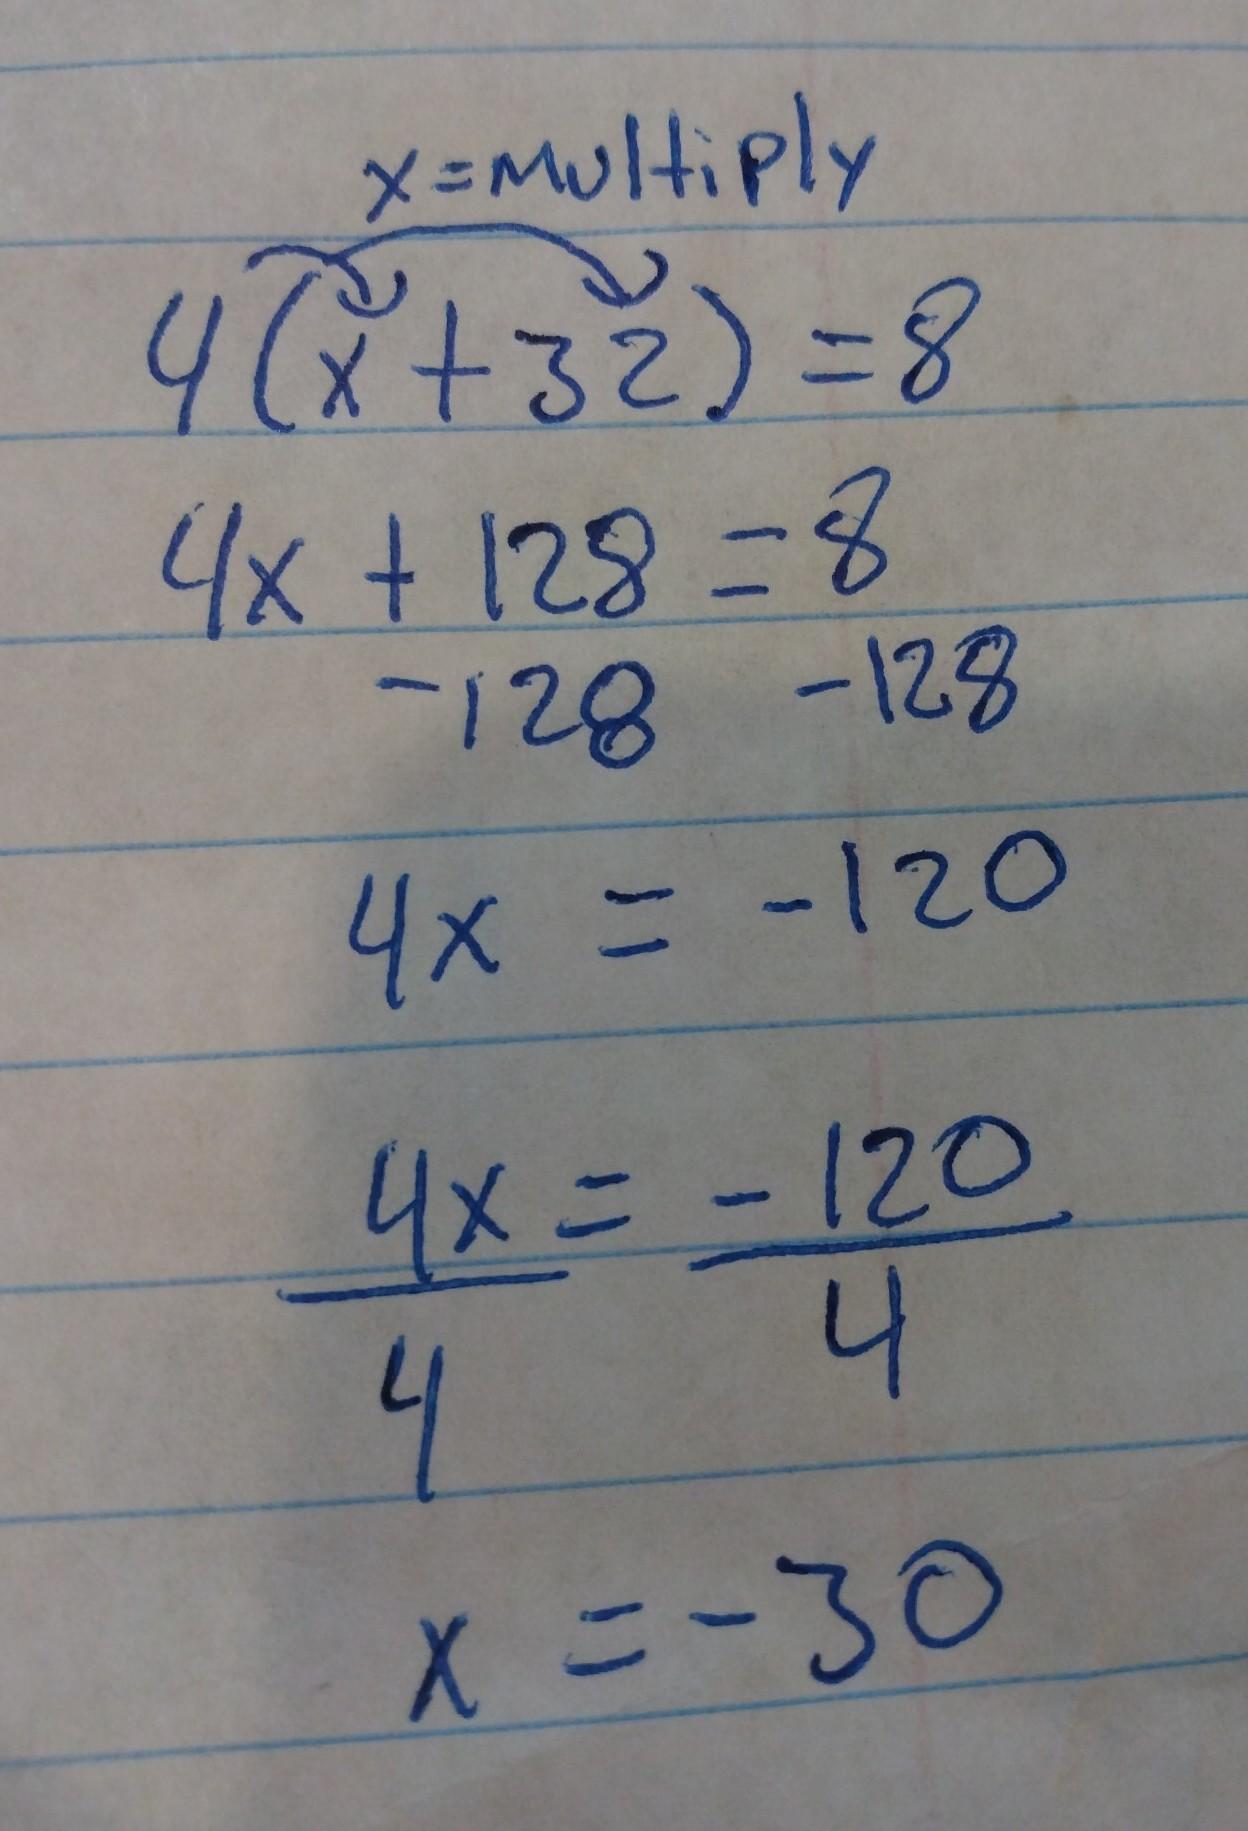 x=Multiply
4(x+32)=8
4x + 128 = 8
-128 -128
4x = -120
4x = -120
4 4
x = -30